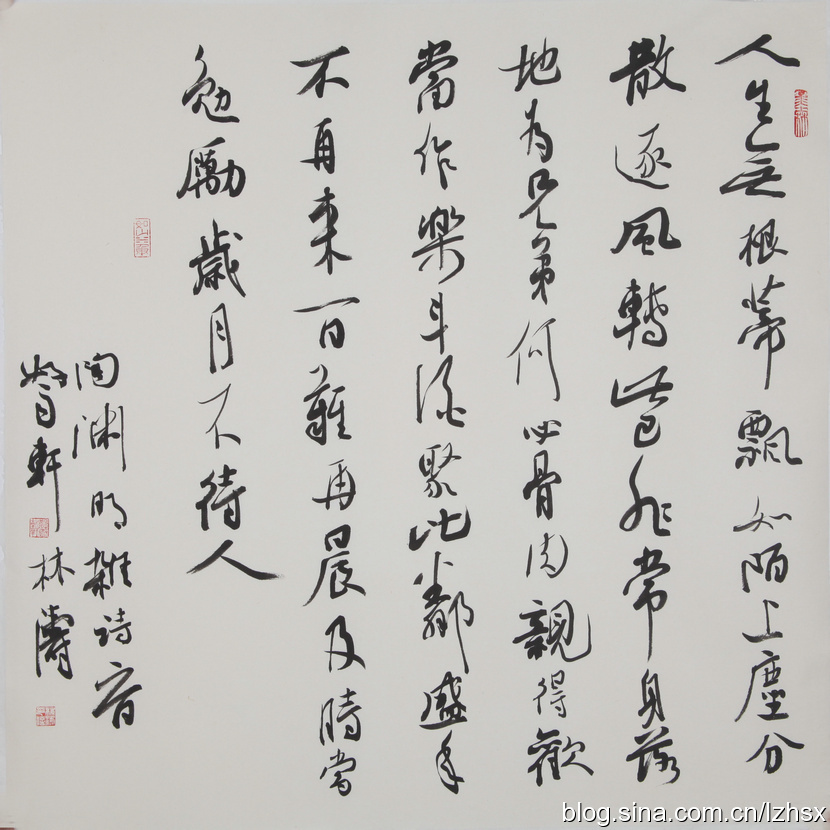 人生無根蒂飄如陌上塵分
散逐風轉此已非常身落
地為兄弟何必骨肉親得歡
當作樂斗酒聚比鄰盛年
不再來一日難再晨及時當
勉勵歲月不待人
陶淵明雜詩
軒 林濤
blog.sina.com.cn/lzhsx